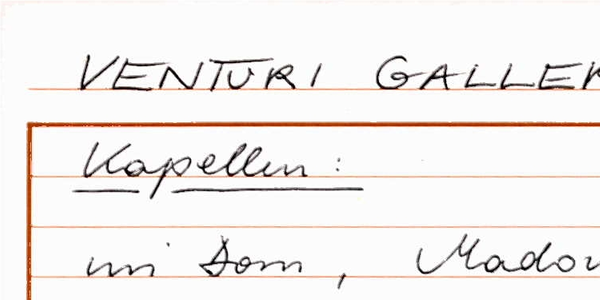 VENTURI GALLER
Kapellen :
im Dom, Mador